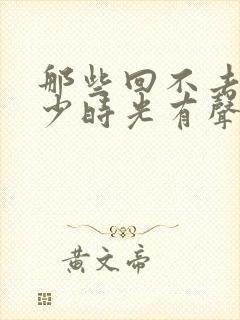 那些回不去
少時光有聲
黃文帝